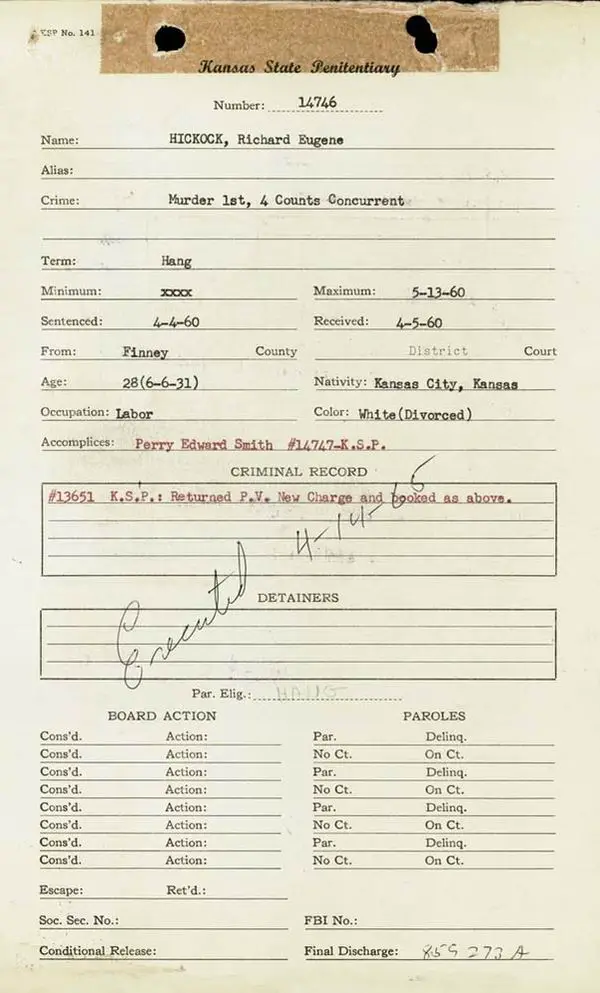 KSP No. 141
Kansas State Penitentiary
Number: 14746
Name: HICKOCK, Richard Eugene
Alias:
Crime: Murder 1st, 4 Counts Concurrent
Term: Hang
Minimum: xxxx Maximum: 5-13-60
Sentenced: 4-4-60 Received: 4-5-60
From: Finney County District Court
Age: 28(6-6-31) Nativity: Kansas City, Kansas
Occupation: Labor Color: White(Divorced)
Accomplices: Perry Edward Smith #14747-K.S.P.
CRIMINAL RECORD
#13651 K.S.P.: Returned P.V. New Charge and booked as above.
Executed 4-14-65
DETAINERS
Par. Elig.: HANG
BOARD ACTION PAROLES
Cons'd. Action: Par. Delinq.
Cons'd. Action: No Ct. On Ct.
Cons'd. Action: Par. Delinq.
Cons'd. Action: No Ct. On Ct.
Cons'd. Action: Par. Delinq.
Cons'd. Action: No Ct. On Ct.
Cons'd. Action: Par. Delinq.
Cons'd. Action: No Ct. On Ct.
Escape: Ret'd.:
Soc. Sec. No.: FBI No.:
Conditional Release: Final Discharge: 859 273 A